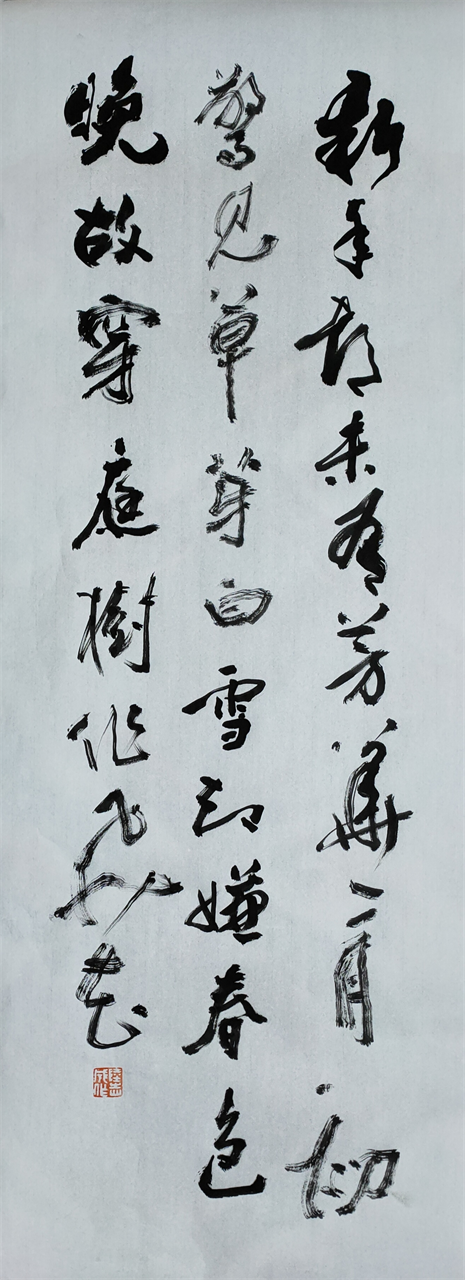 新年都未有芳華二月初
驚見草芽白雪却嫌春色
晚故穿庭樹作飛花